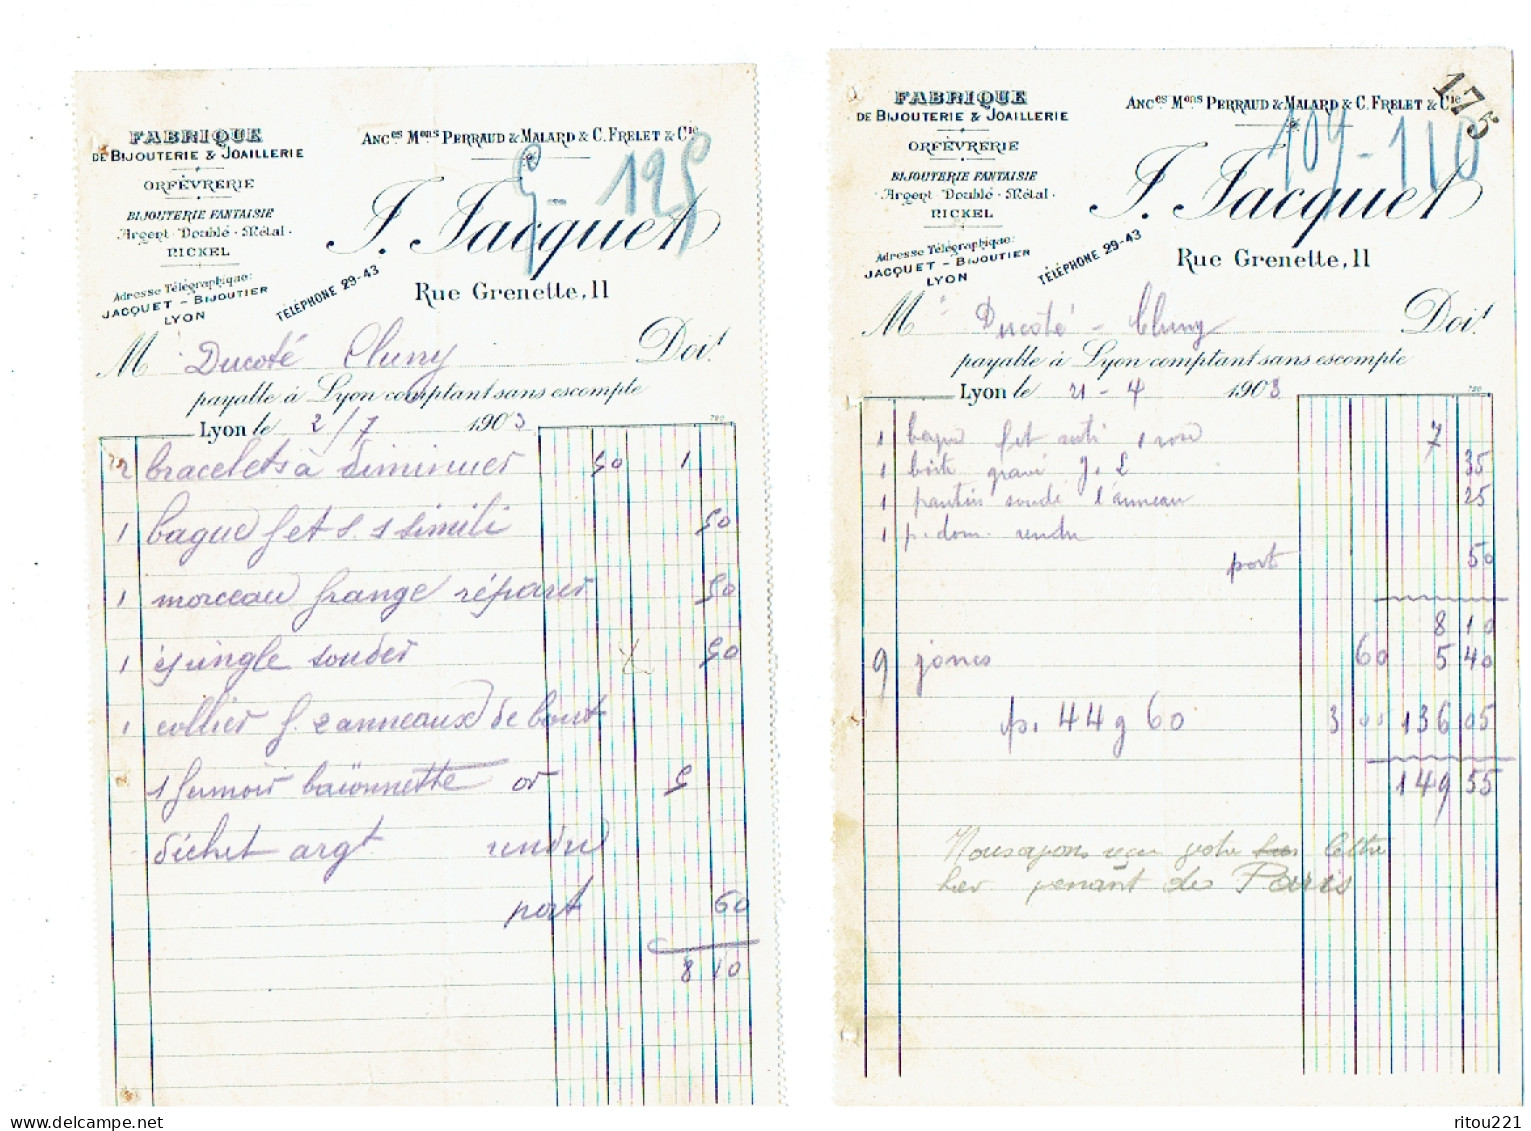 FABRIQUE
DE BIJOUTERIE & JOAILLERIE
ORFÈVRERIE
BIJOUTERIE FANTAISIE
Argent · Doublé · Métal ·
NICKEL
Adresse Télégraphique:
JACQUET - BIJOUTIER
LYON
TÉLÉPHONE 29-43
ANCes Mons PERRAUD & MALARD & C. FRELET & Cie
5 - 125
J. Jacquet
Rue Grenette, 11
M Ducoté Cluny Doit
payable à Lyon comptant sans escompte
Lyon le 2/7 1903
780
2 bracelets à diminuer 50 1
1 bague f et s. 1 simili 50
1 morceau frange réparer 50
1 épingle souder 50
1 collier f. 2 anneaux de bout
1 fermoir baïonnette or 5
déchet argt rendu
port 60
8 10
FABRIQUE
DE BIJOUTERIE & JOAILLERIE
ORFÈVRERIE
BIJOUTERIE FANTAISIE
· Argent · Doublé · Métal ·
NICKEL
Adresse Télégraphique:
JACQUET - BIJOUTIER
LYON
TÉLÉPHONE 29-43
ANCes Mons PERRAUD & MALARD & C. FRELET & Cie
175
109 - 110
J. Jacquet
Rue Grenette, 11
M Ducoté - Cluny Doit
payable à Lyon comptant sans escompte
Lyon le 21 - 4 1903
780
1 bague fet anti 1 rose 7
1 boîte gravé J. L 35
1 pantin soudé l'anneau 25
1 p. dom. rendu
port 50
8 10
9 joncs 60 5 40
p. 44 g 60 3 05 136 05
149 55
Nous avons reçu votre lettre
hier venant de Paris
ritou221